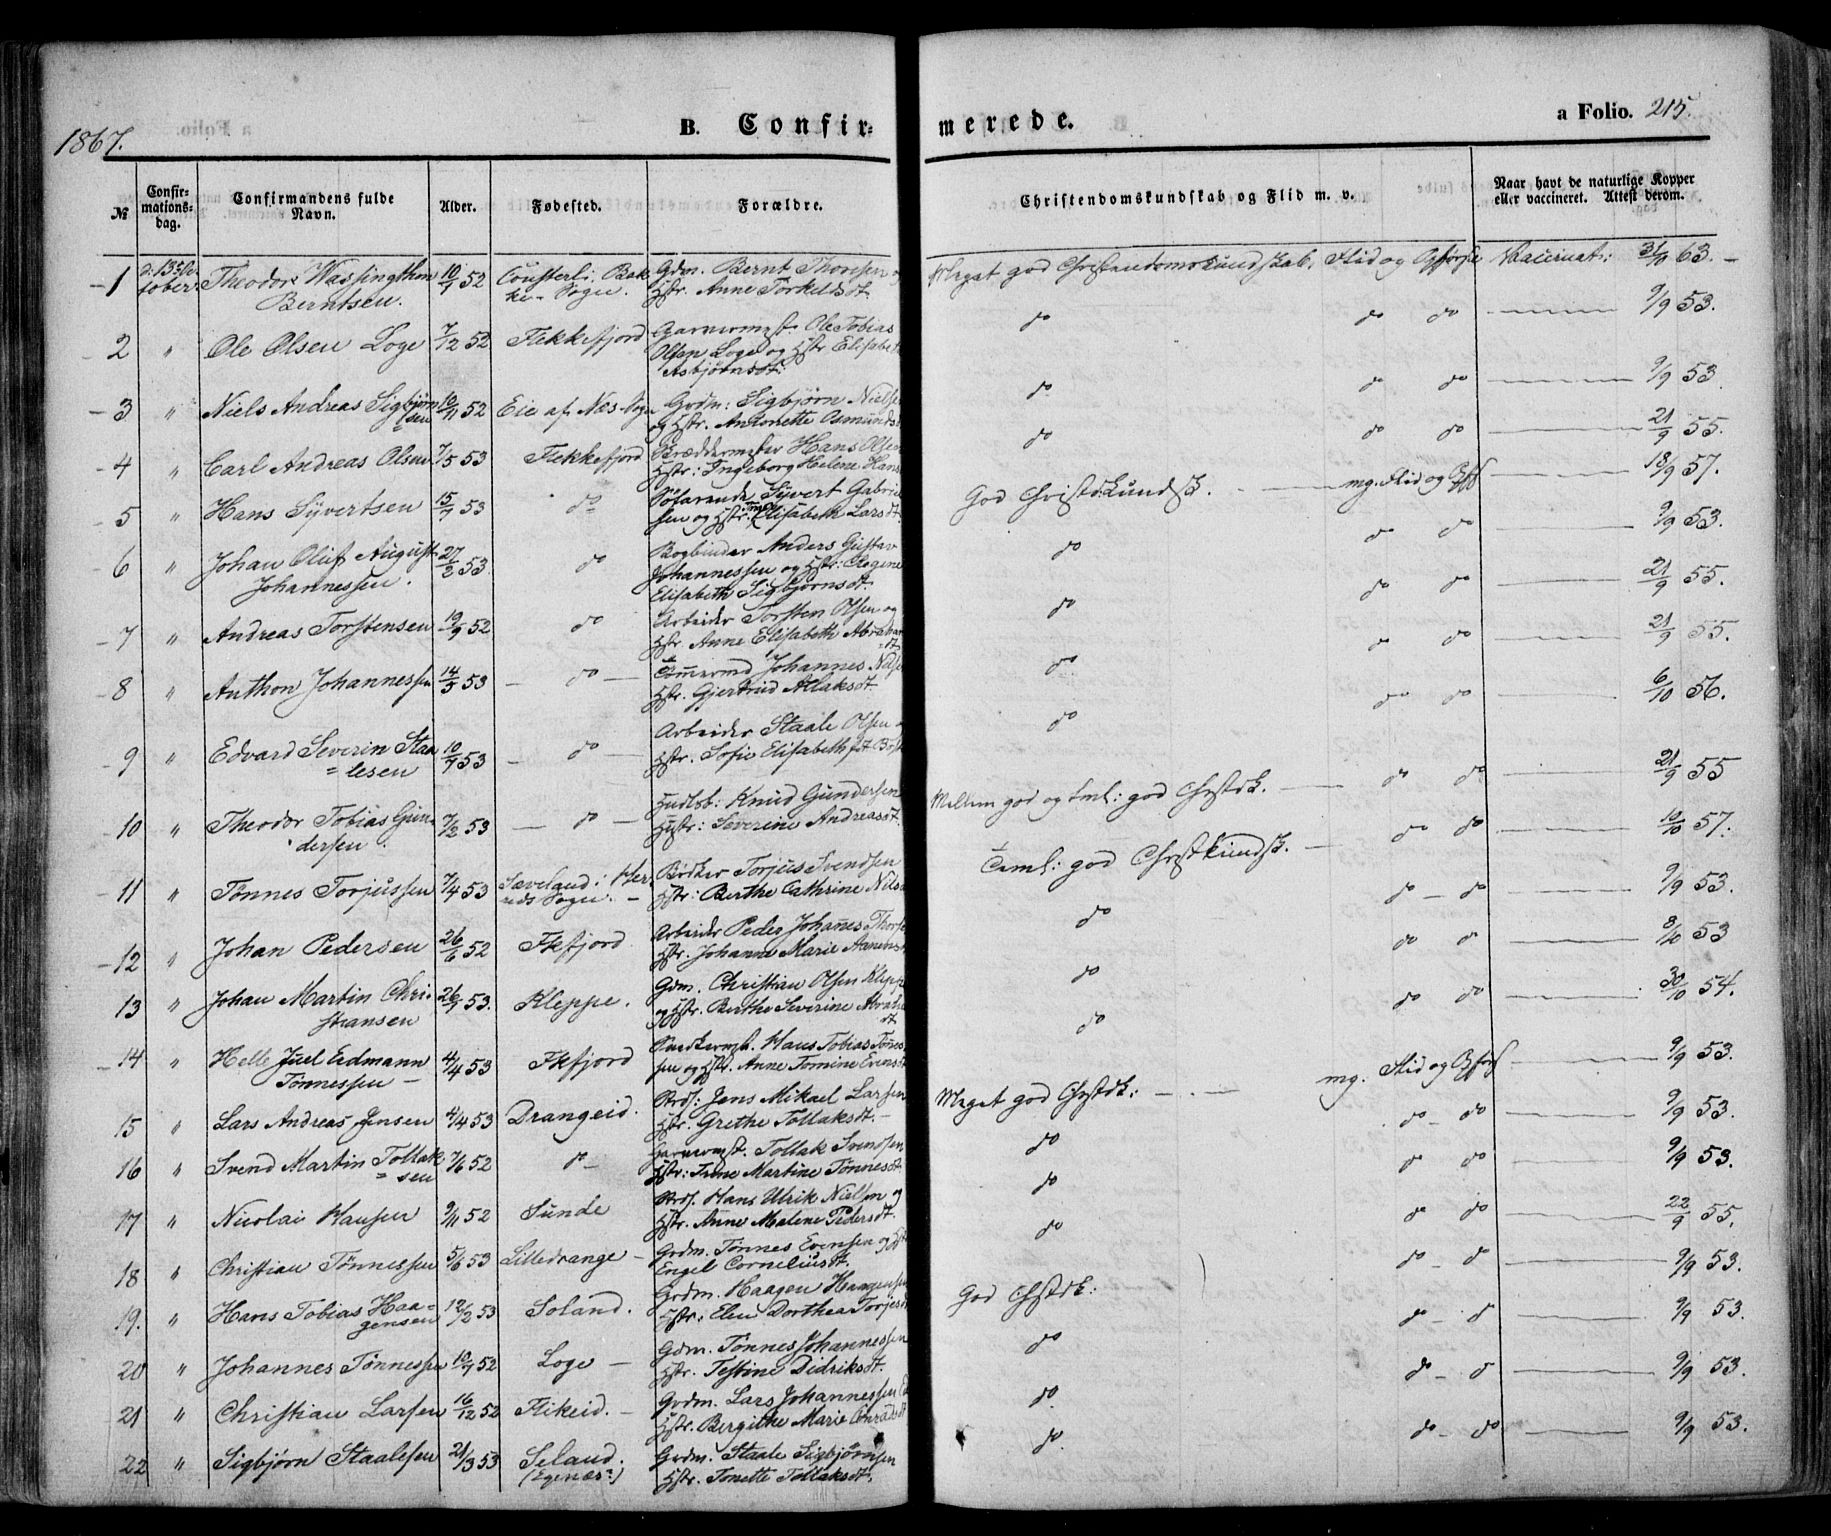 1867.
B. Confir-
merede.
a Folio. 215.
№
Confir-
mations-
dag.
Confirmandens fulde
Navn.
Alder.
Fødested.
Forældre.
Christendomskundskab og Flid m. v.
Naar havt de naturlige Kopper
eller vaccineret. Attest derom.
1 Theodor Wassingthon 10/7 52 Sogn. Gdm. Bernt Thorsen og
Berntsen. Hstr. Anne Torkeldsdt.
Meget god Christendomskundskab, Flid og Opførsel Vaccinat: 31/10 63.
2 " Ole Olsen Loge 7/12 52 Flekkefjord Garvermst. Ole Tobias
Olsen Loge og Hstr Elisabeth
Asbjørnsdt:
do do do 9/9 53.
3 " Niels Andreas Sigbjørn 10/11 52 Eie af Næs Sogn Grdm: Sigbjørn Nielsen
sen og Hstr. Antonette Osmunds
do do do 9/9 53
4 " Carl Andreas Olsen 7/5 53 Flekkefjord Hans Olsen
Hstr: Ingeborg Helene Hans
do do do 21/9 55.
5 " Hans Syvertsen 15/7 53 do Søfarende Syvert Gabriel
sen og Hstr. Elisabeth Larsdt.
God Christdkundsk. mg. Flid og Opf 18/9 57.
6 " Johan Oluf August 27/2 53 do Bogbinder Anders Gustav
Johannessen. Johannessen og Hstr: Regine
Elisabeth Sigbjørnsdt.
do do do 9/9 53.
7 " Andreas Torstensen 19/9 52 do Arbeider Torsten Olsen og
Hstr Anne Elisabeth Abraham
dt
do do do 21/9 55.
8 " Anthon Johannessen 14/5 53 do Tømermd Johannes Nilsen
Hstr. Gjertrud Atlaksdt.
do do do 21/9 55.
9 " Edvard Severin Staa 10/7 53 do Arbeider Staale Olsen
lesen Hstr. Sofie Elisabeth
do do do 6/10 56.
10 " Theodor Tobias Gun 7/2 53 do Knud Gundersen
dersen. Hustr: Severine Andreasdt.
Mellem god og teml: god Chrstdk. do do 21/9 55
11 " Tønnes Torjussen 7/4 53 Sæveland i Her- Bødker Torjus Svendsen
reds Sogn. Hstr: Berthe Cathrine Nils
Teml: god Christkundsk. do do 10/10 57.
12 " Johan Pedersen 26/6 52 Fkfjord. Arbeider Peder Johanes
Hstr. Johanne Marie
do do do 9/9 53.
13 " Johan Martin Chri- 26/7 53. Kleppe. Gdm. Christian Olsen Kleppe
stiansen og Hstr. Berthe Severine Abraha
dt
do do do 8/10 53
14 " Helle Juel Erdmann 4/4 53 Fkfjord Snedkermst. Hans Tobias Tønes
Tønnessen sen og Hstr. Anne Tomine Evensdt
do do do 30/10 54.
15 " Lars Andreas Jensen 4/4 53 Drangeid. Jens Mikael Larsen
Hstr. Grethe Tollaksdt.
Meget god Chrstdk: mg. Flid og Opførs 9/9 53.
16 " Svend Martin Tollak 7/6 52 do Garvermst. Tollak Svendsen
sen Hstr: Trine Martine Tønnesdt.
do do do 9/9 53.
17 " Nicolai Hansen 9/11 52 Sunde Hans Ulrik Nielsen og
Hstr. Anne Malene Pedersdt.
do do do 9/9 53.
18 " Christian Tønnessen 5/6 53 Lilledrange Grdm. Tønnes Evensen og Hstr
Engel Corneliusdt.
do do do 22/9 55.
19. " Hans Tobias Haa- 12/2 53 Soland. Grdm. Haagen Haagensen
gensen Hstr: Elen Dorthea Torjesd
God Chstdk: do do 9/9 53.
20 " Johannes Tønnessen 10/7 52 Loge Gdm. Tønnes Johannessen
Hstr. Testine Didriksdt.
do do do 9/9 53.
21 " Christian Larsen 16/12 52 Flikeid. Grdm. Lars Johannessen
Hstr. Bergithe Marie Conradsdt
do do do 9/9 53.
22 " Sigbjørn Staalesen 21/3 53 Seland. Grdm. Staale Sigbjørnsen
(Egenæs) Hstr. Tonette Tollaksdt.
do do do 9/9 53.